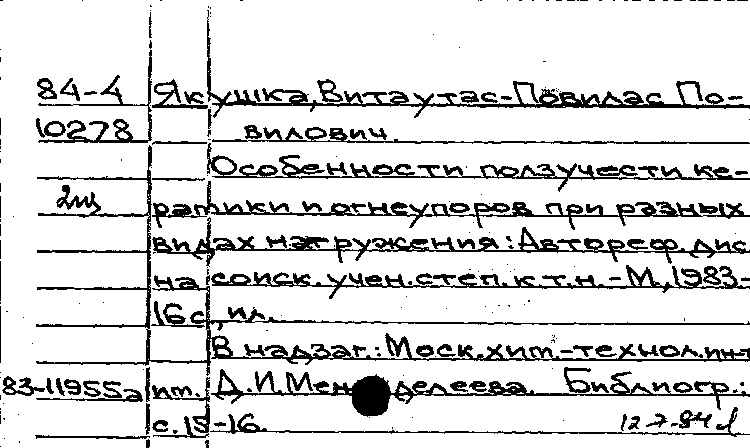 84-4 Якушка, Витаутас-Повилас По-
10278 вилович.
Особенности ползучести ке-
2щ рамики и огнеупоров при разных
видах нагружения: Автореф. дис
на соиск. учен. степ. к.т.н. - М., 1983-
16 с., ил.
В надзаг.: Моск. хим.-технол. ин-т
83-11955а им. Д.И. Менделеева. Библиогр.:
с. 15-16. 12-7-84